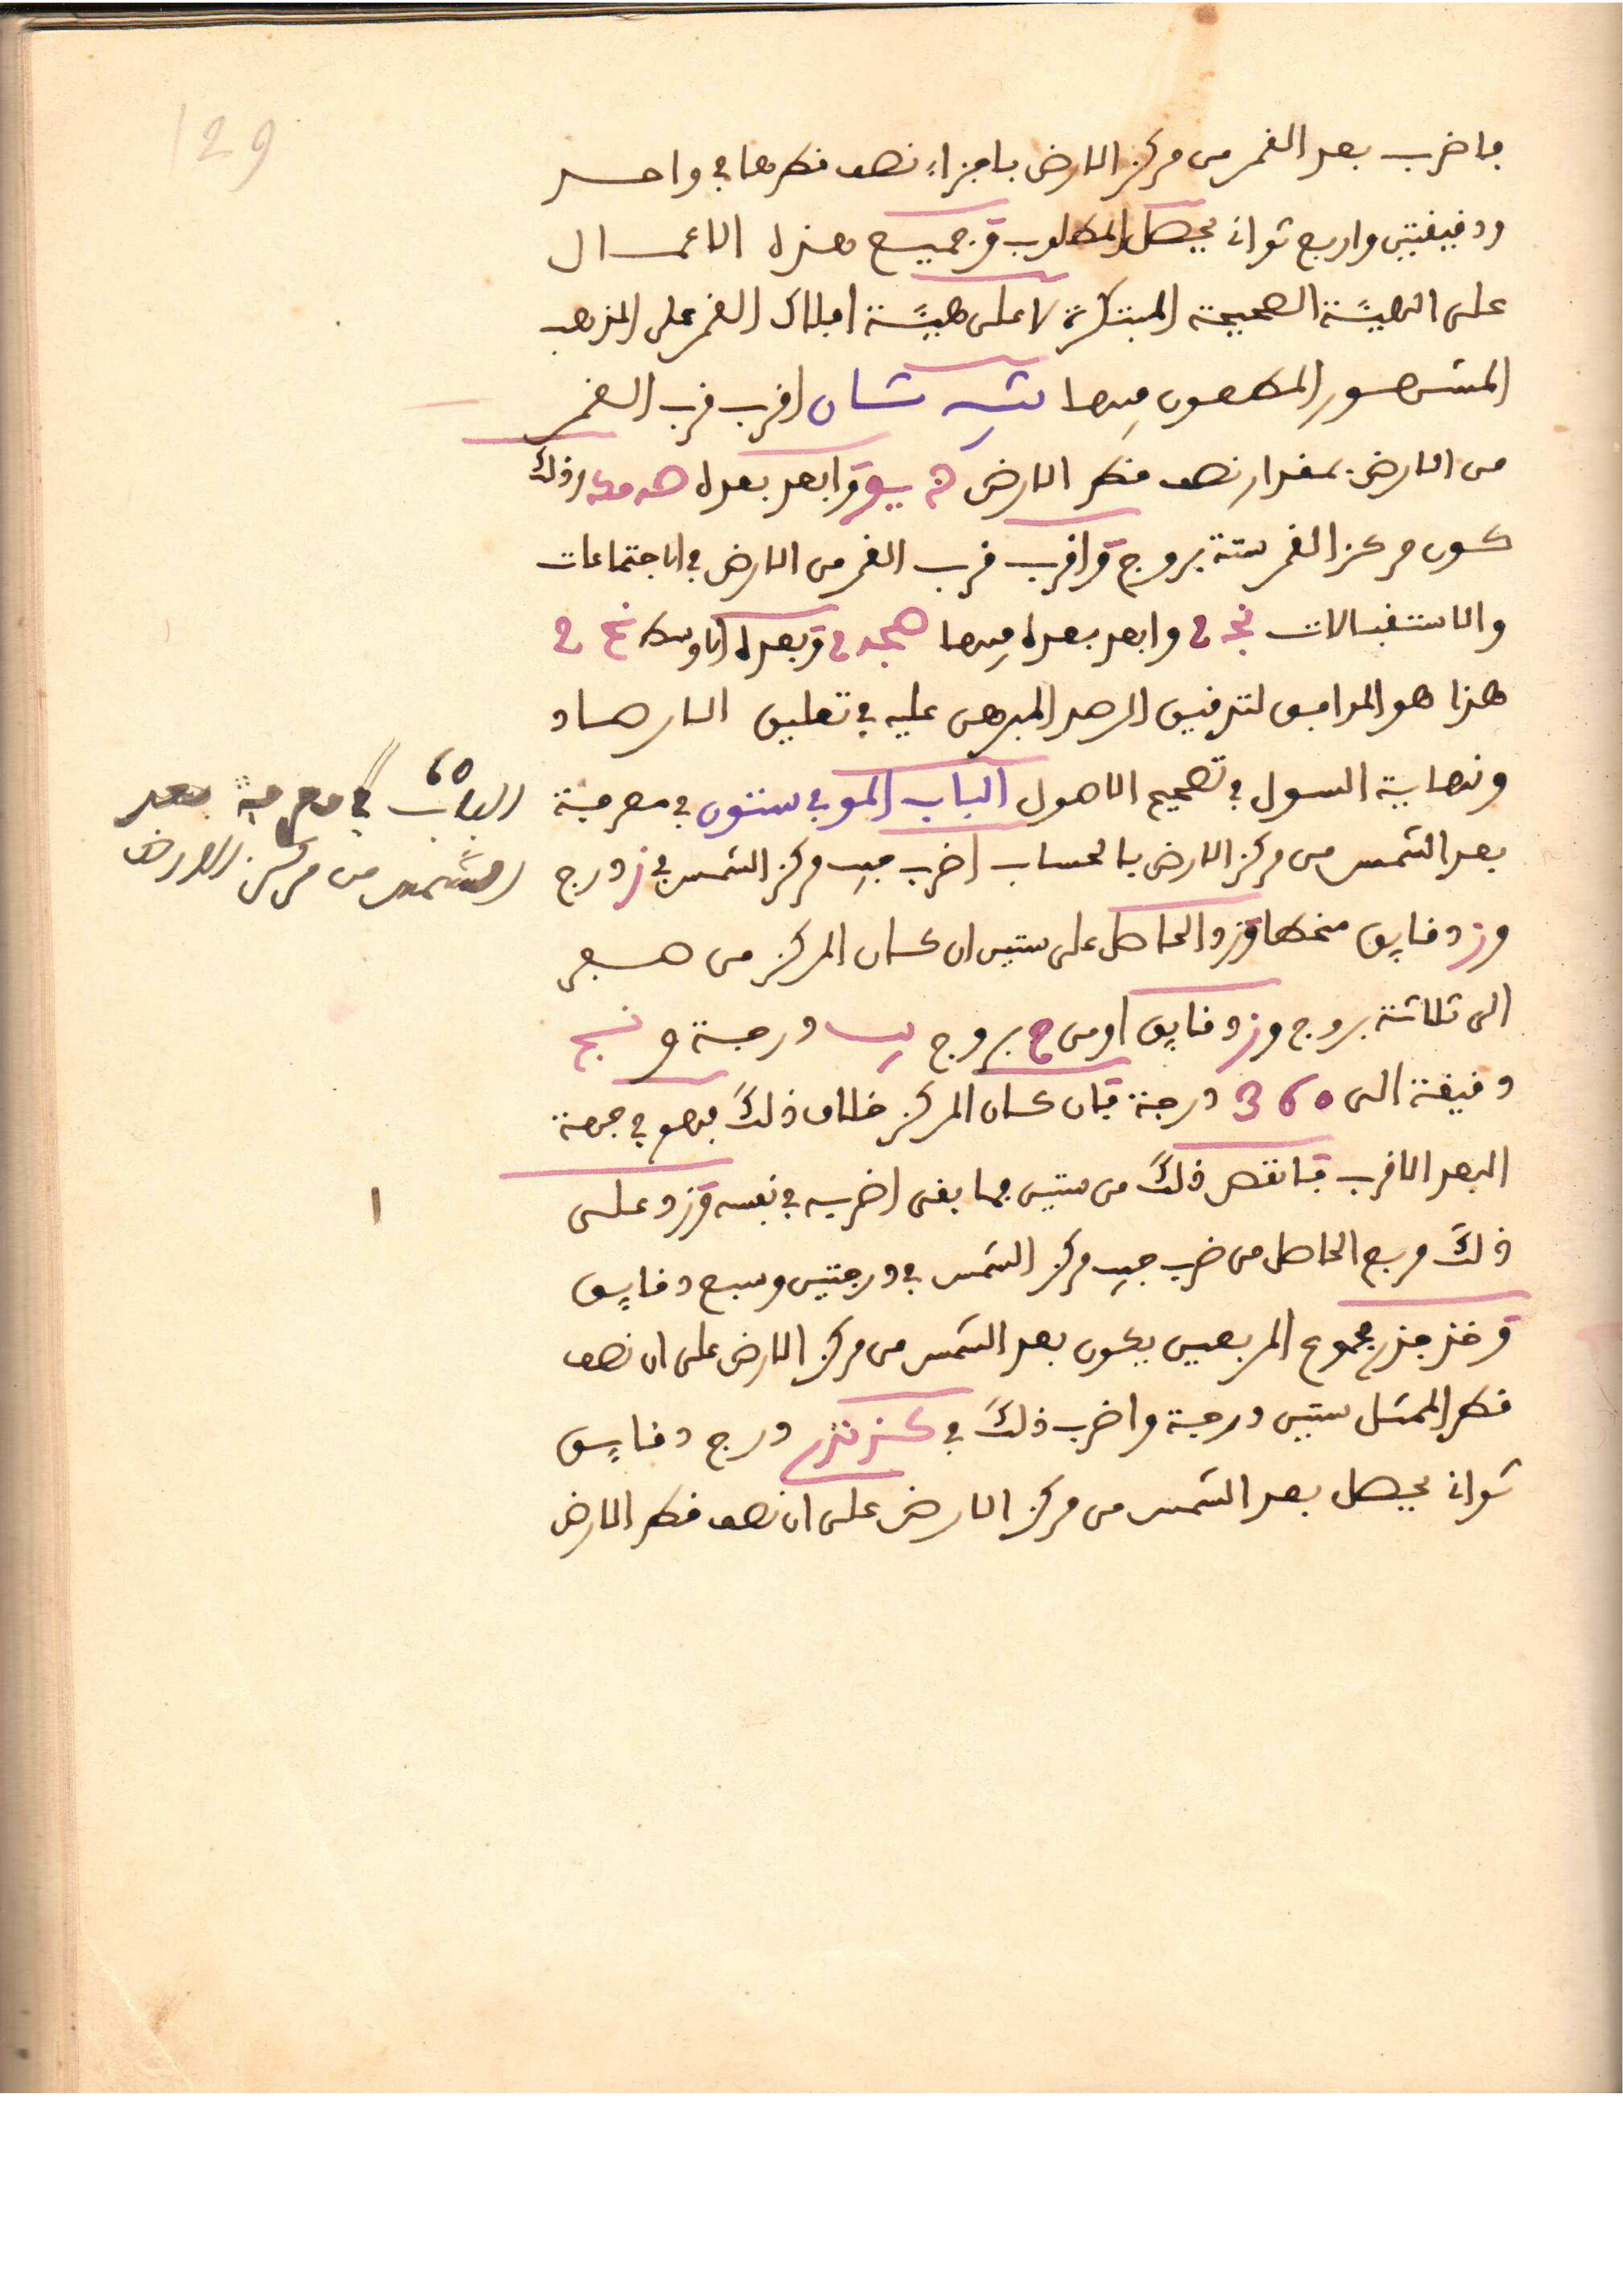 129
فاضرب بعد القمر من مركز الارض باجزاء نصف قطرها في واحد
ودقيقتين واربع ثواني يحصل المطلوب وجميع هذه الاعمال
على الهيئة الصحيحة المبتكرة لا على هيئة افلاك القمر على المذهب
المشهور المطعون فيها اقرب قرب القمر
من الارض بمقدار نصف قطر الارض وابعد بعده وذلك
كون مركز القمر ستة بروج واقرب قرب القمر من الارض في الاجتماعات
والاستقبالات وابعد بعده فيها وبعده الاوسط
هذا هو الموافق لتدقيق الرصد المبرهن عليه في تعليق الارصاد
ونهاية السول في تصحيح الاصول الباب الموفي ستون في معرفة
الباب 60 في معرفة بعد
الشمس من مركز الارض
بعد الشمس من مركز الارض بالحساب اضرب جيب مركز الشمس في ز درج
وز دقايق منحطا وزد الحاصل على ستين ان كان المركز من صفر
الى ثلاثة بروج وز دقايق او من ح بروج درجة و نج
دقيقة الى 360 درجة فان كان المركز خلاف ذلك فهو في جهة
البعد الاقرب فانقص ذلك من ستين فما بقى اضربه في نفسه وزد على
ا
ذلك مربع الحاصل من ضرب جيب مركز الشمس في درجتين وسبع دقايق
وخذ جذر مجموع المربعين يكون بعد الشمس من مركز الارض على ان نصف
قطر الممثل ستين درجة واضرب ذلك في درج دقايق
ثواني يحصل بعد الشمس من مركز الارض على ان نصف قطر الارض